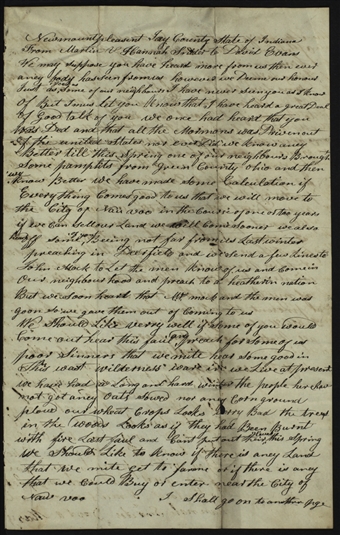 Newmountpleasent Jay County State of Indiana
From Martin & Hannah to David Evans
We may suppose you have heard more from us then ever
aney body has even from us however we Deem us honours
Just as some of our neighbours I have never seen you as I know
of But I must let you know that I have heard a great Deal
of Good talk of you we once had heart that you
was Ded and that all the Mormons was Drivenout
of the united states nor ever did we know aney
Better till this spring one of our neighbours Brough
some pamplets from Green County ohio and then
we know Better we have made some Calculation if
Everything Comes good to us that we will move to
the City of Nauvoo in the Course of one or too years
if we Can sellour Land we will Com sooner we also
heard of some Being not far from us Last winter
preaching in Deerfield and we send a few lines to
John Mock to Let the men know of us and Come in
Our neighbourhood and preach to a heathern nation
But we soon heart that Mr mock and the men was
goon so we gave them out of Coming to us
We Should Like verry well if some of you would
Come out hear this fall and preach for some of us
poor sinners that we mite has some good in
this wast wilderness ware in we Live at present
we have had a Long and hard winter the people her has
not got aney Oats sowed nor aney Corn ground
plowd out wheat Crops Looks very Bad the trees
in the woods Looks as if they had Been Burnt
with fire Last faul and Cant put out this spring
we Should Like to know if there is aney Land
that we mite get to farme or if there is aney
that we Could Buy or enter near the City of
Nauvoo I shall go on to another page